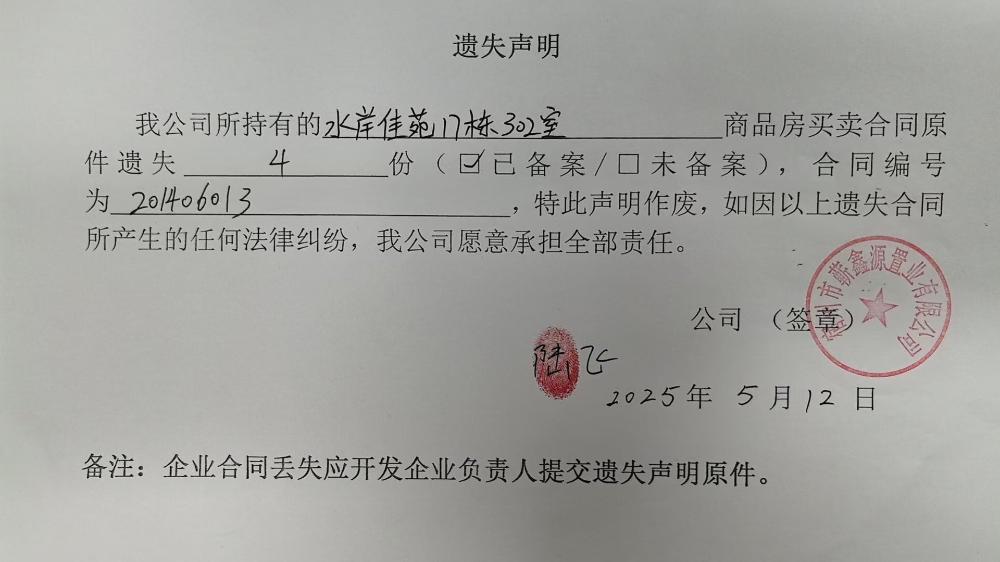 遗失声明
我公司所持有的水岸佳苑17栋302室商品房买卖合同原
件遗失 4 份（☑已备案/☐未备案），合同编号
为 201406013 ，特此声明作废，如因以上遗失合同
所产生的任何法律纠纷，我公司愿意承担全部责任。
公司 （签章）
宿州市蕲鑫源置业有限公司
陆飞
2025年 5 月 12 日
备注：企业合同丢失应开发企业负责人提交遗失声明原件。